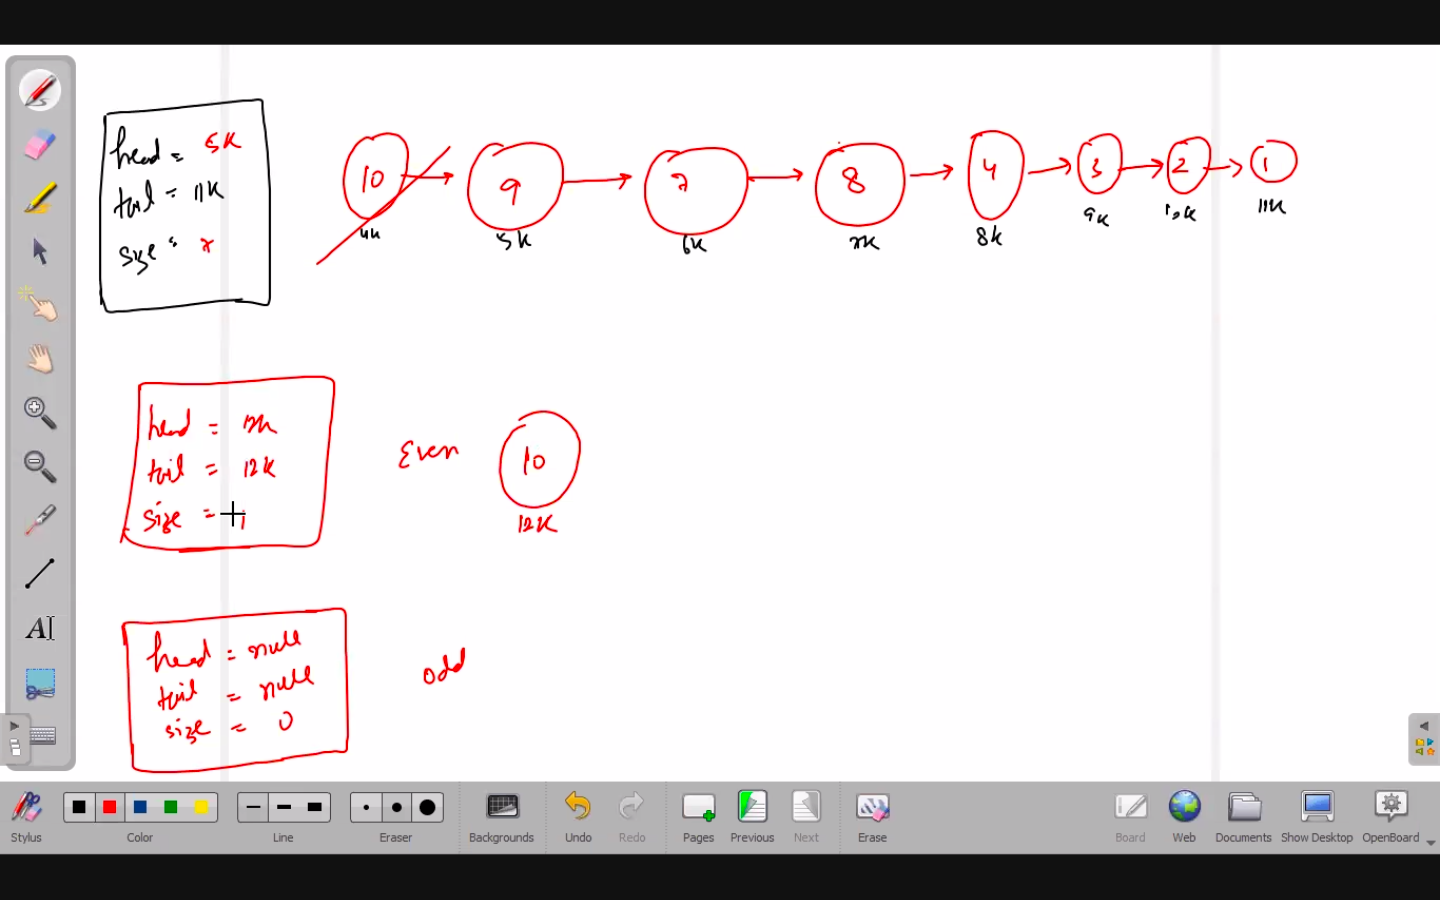 head = 5K
tail = 11K
size = 7
10 → 9 → 7 → 8 → 4 → 3 → 2 → 1
4K 5K 6K 7K 8K 9K 10K 11K
head = 12K
tail = 12K
size = 1
Even
10
12K
head = null
tail = null
size = 0
odd
A
Stylus Color Line Eraser Backgrounds Undo Redo Pages Previous Next Erase Board Web Documents Show Desktop OpenBoard